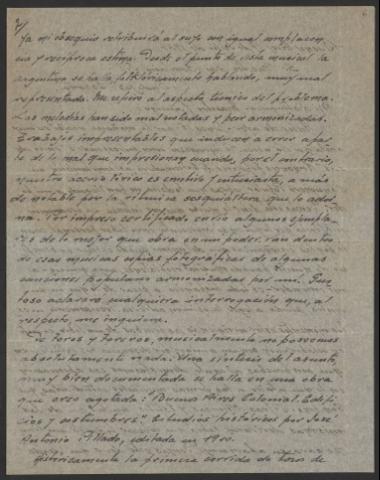 Ya mi obsequio retribuirá al suyo con igual complacen
cia y recíproca estima. Desde el punto de vista musical la
argentina se halla folklóricamente hablando, muy mal
representada. Me refiero al aspecto técnico del problema.
Las melodías han sido mal notadas y peor armonizadas.
Trabajos impresentables que inducen a error aparte
de lo mal que impresionan cuando, por el contrario,
nuestro acervo lírico es emotivo y entusiasta, a más
de notable por la rítmica sesquiáltera que lo ador
na. Por impreso certificado envío algunos ejempla
res de lo mejor que obra en mi poder. Van dentro
de esas músicas copias fotográficas de algunas
canciones populares armonizadas por mí. Gus
toso aclararé cualquiera interrogación que, al
respecto, me inquiera.
De toros y toreros, musicalmente no poseemos
absolutamente nada. Una síntesis del asunto,
muy bien documentada se halla en una obra
que creo agotada: "Buenos Aires Colonial. Edifi
cios y costumbres". Estudios históricos por José
Antonio Pillado, editada en 1910.
Históricamente la primera corrida de toros de